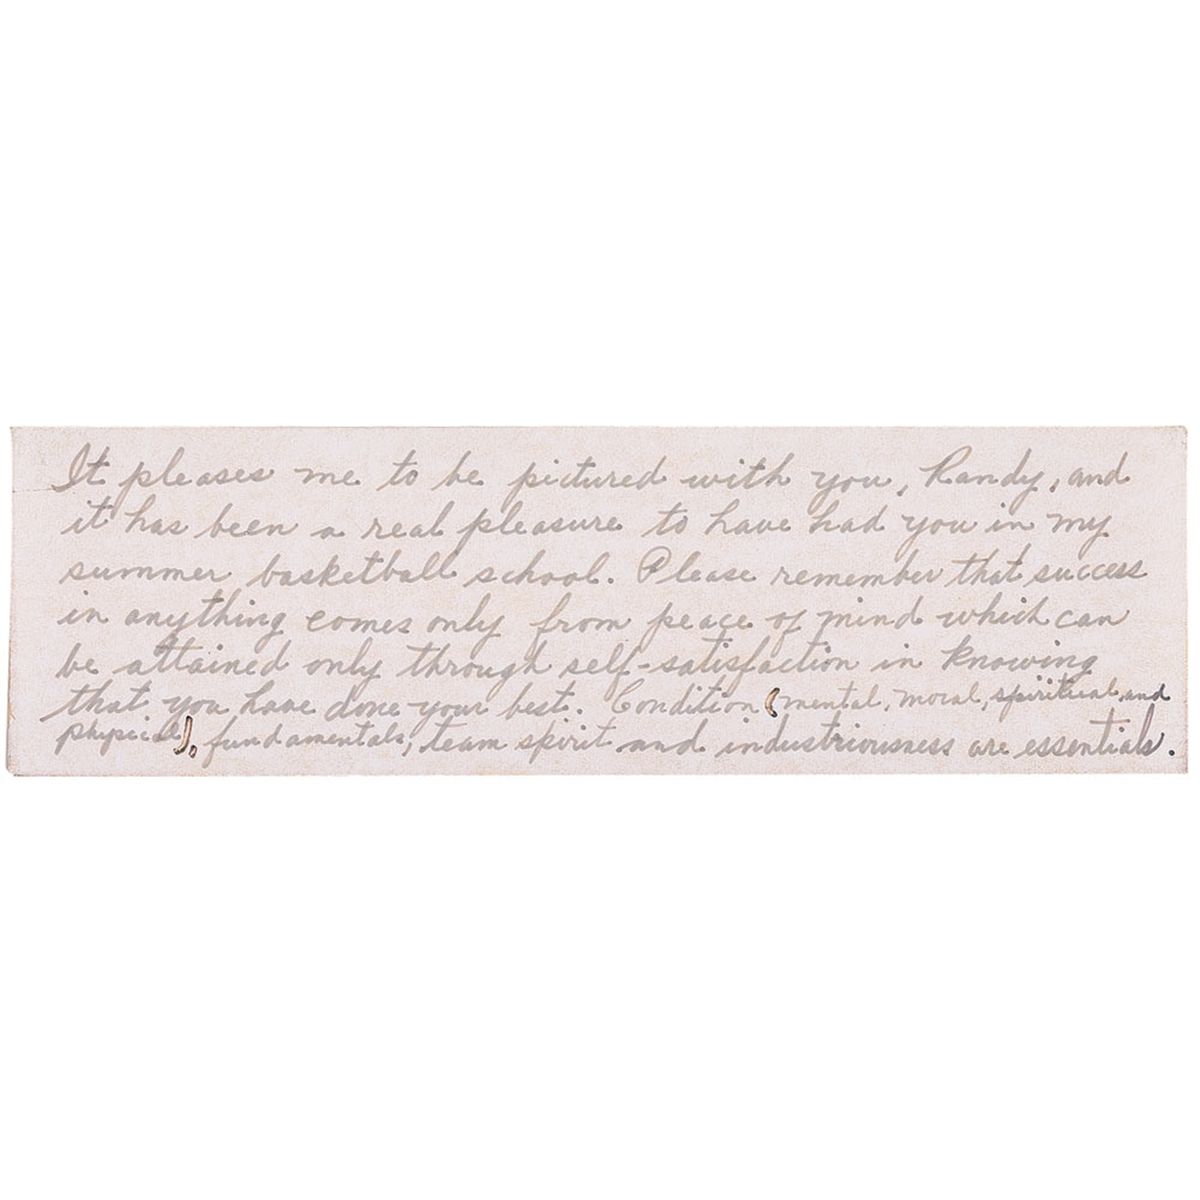 It pleases me to be pictured with you, Randy, and
it has been a real pleasure to have had you in my
summer basketball school. Please remember that success
in anything comes only from peace of mind which can
be attained only through self-satisfaction in knowing
that you have done your best. Condition (mental, moral, spiritual and
physical), fundamentals, team spirit and industriousness are essentials.